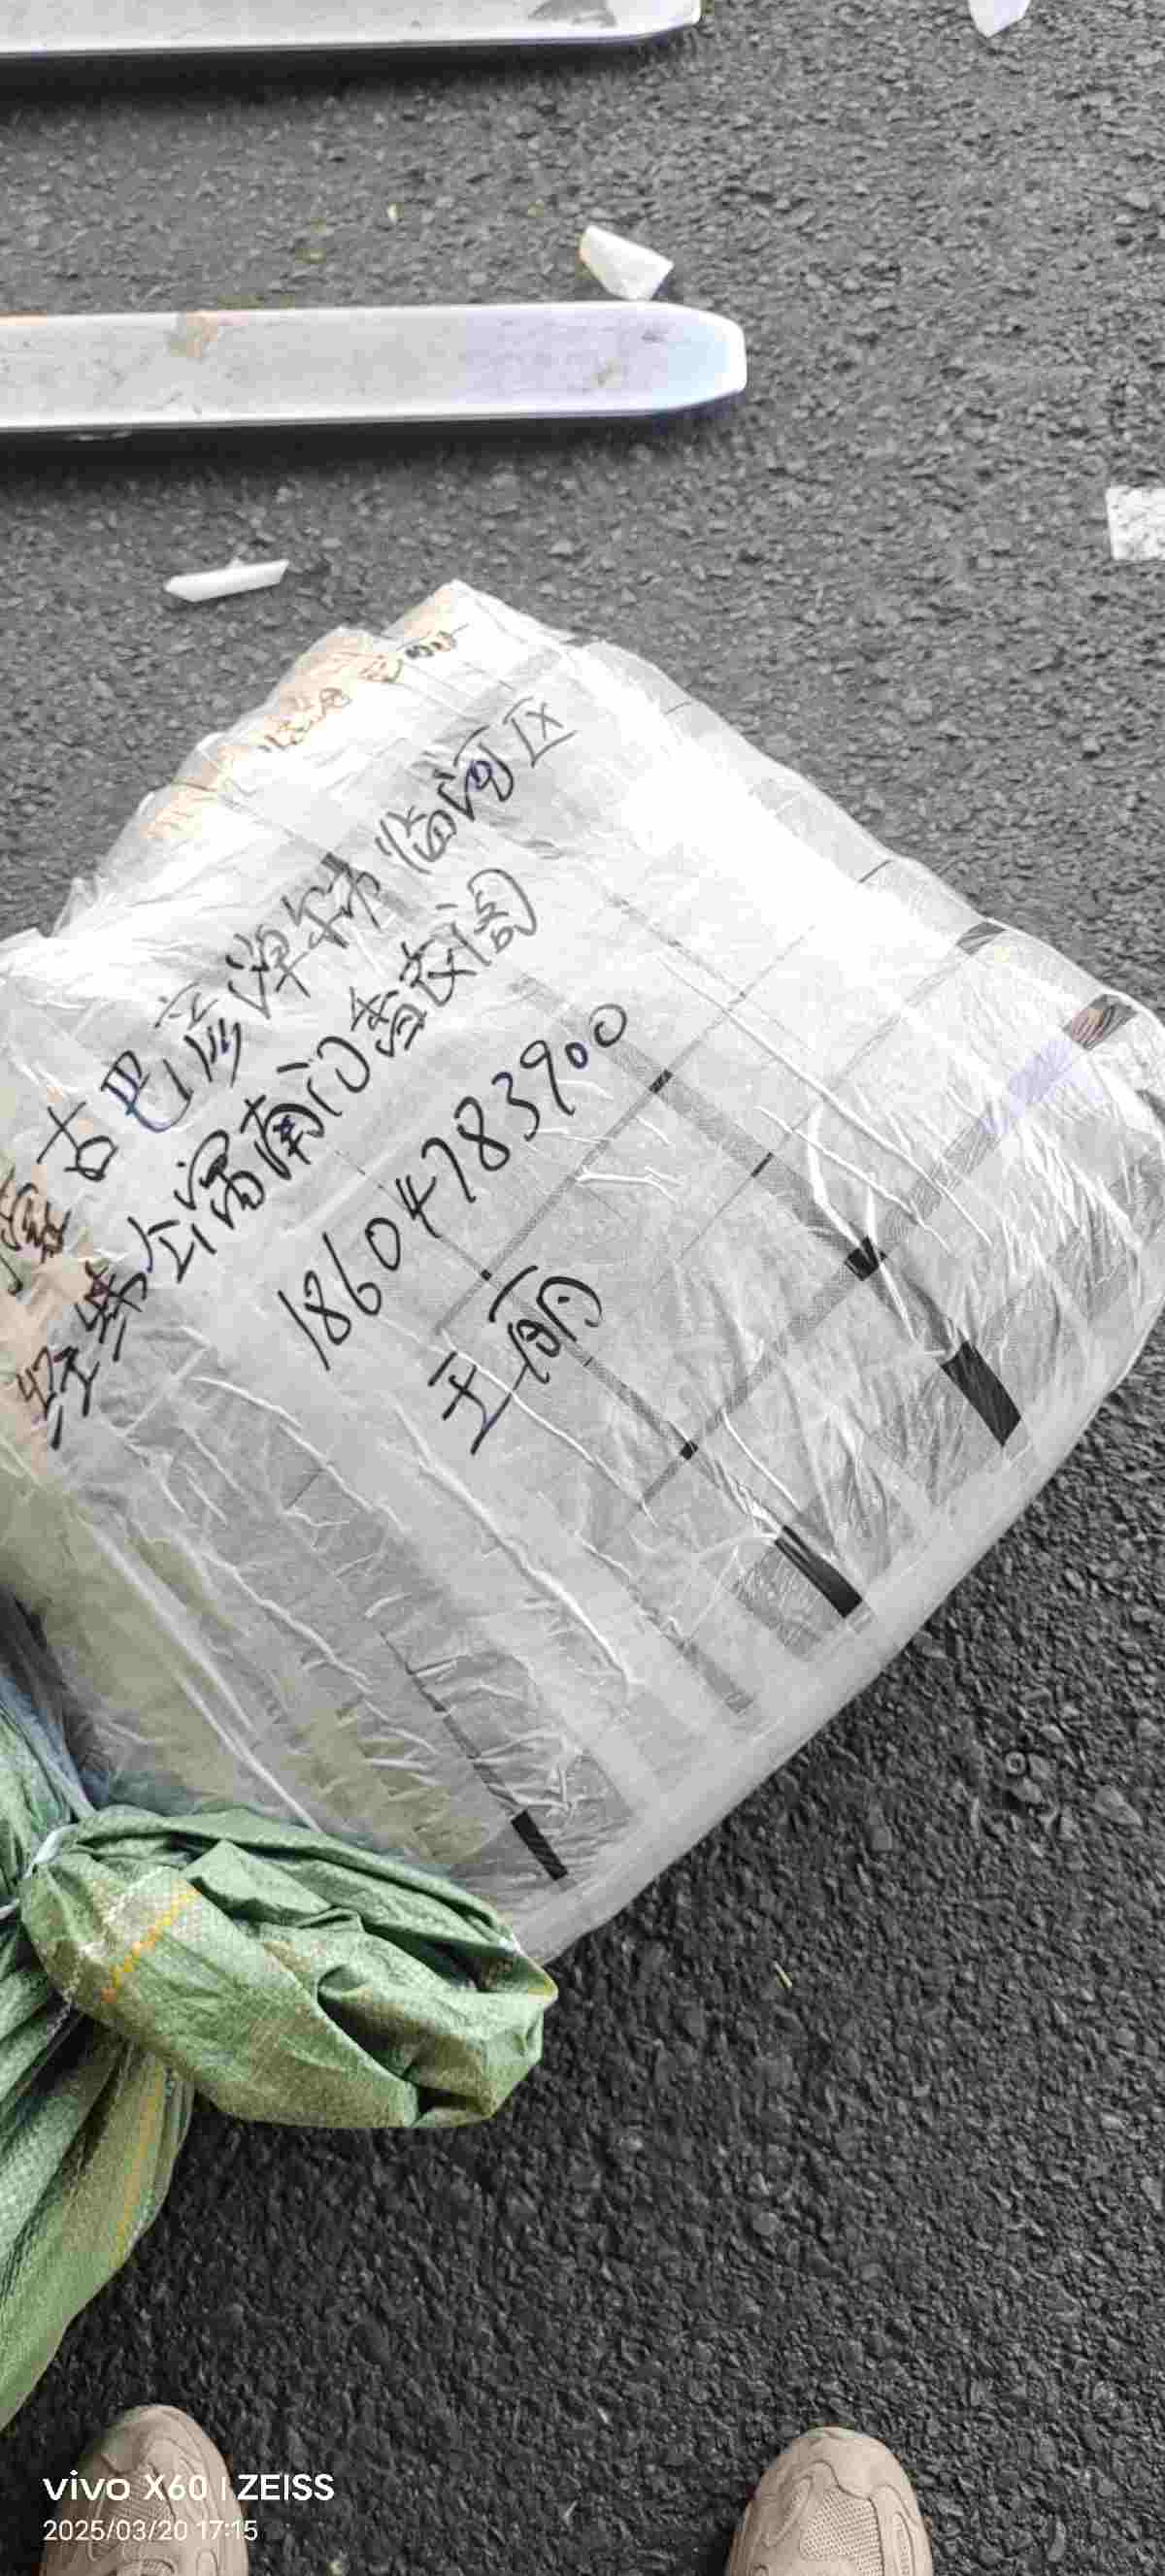 蒙古巴彦淖尔市临河区
经纬公寓南门鑫渔阁
18604783900
王丽
vivo X60 | ZEISS
2025/03/20 17:15